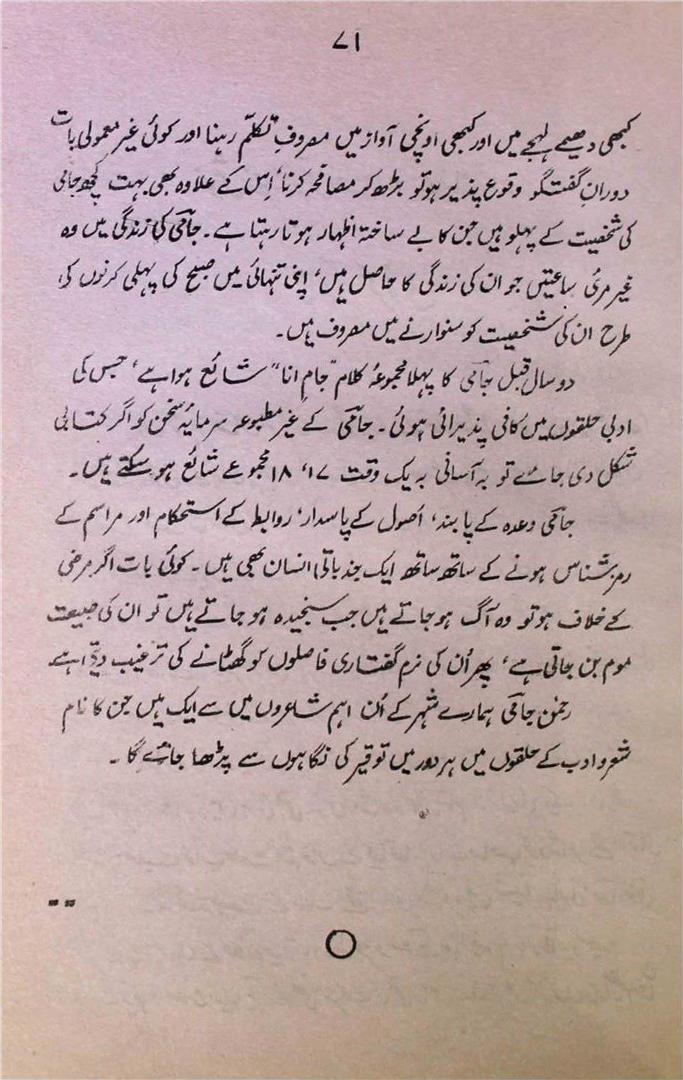 ۷۱
کبھی دھیمے لہجے میں اور کبھی اونچی آواز میں مصروفِ تکلّم رہنا اور کوئی غیر معمولی بات
دورانِ گفتگو وقوع پذیر ہو تو بڑھ کر مصافحہ کرنا، اِس کے علاوہ بھی بہت کچھ جامی
کی شخصیت کے پہلو ہیں جن کا بے ساختہ اظہار ہوتا رہتا ہے۔ جامی کی زندگی میں وہ
غیر مرئی ساعتیں جو ان کی زندگی کا حاصل ہیں، اپنی تنہائی میں صبح کی پہلی کرنوں کی
طرح ان کی شخصیت کو سنوارنے میں مصروف ہیں۔
دو سال قبل جامی کا پہلا مجموعۂ کلام "جامِ انا" شائع ہوا ہے، جس کی
ادبی حلقوں میں کافی پذیرائی ہوئی۔ جامی کے غیر مطبوعہ سرمایۂ سخن کو اگر کتابی
شکل دی جائے تو بہ آسانی بہ یک وقت ۱۷، ۱۸ مجموعے شائع ہو سکتے ہیں۔
جامی وعدہ کے پابند، اُصول کے پاسدار، روابط کے استحکام اور مراسم کے
رمز شناس ہونے کے ساتھ ساتھ ایک جذباتی انسان بھی ہیں۔ کوئی بات اگر مرضی
کے خلاف ہو تو وہ آگ ہو جاتے ہیں جب سنجیدہ ہو جاتے ہیں تو ان کی طبیعت
موم بن جاتی ہے، پھر اُن کی نرم گفتاری فاصلوں کو گھٹانے کی ترغیب دیتی ہے۔
رحمٰن جامی ہمارے شہر کے اُن اہم شاعروں میں سے ایک ہیں جن کا نام
شعر و ادب کے حلقوں میں ہر دور میں توقیر کی نگاہوں سے پڑھا جائے گا۔